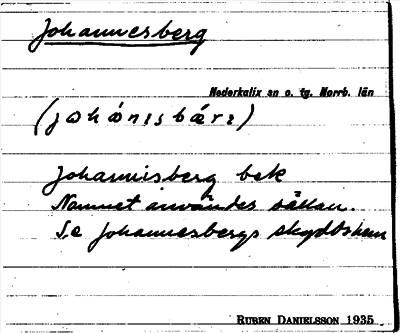 Johannesberg
Nederkalix sn o. tg. Norrb. län
(johánısbárı)
Johannisberg bek
Namnet användes sällan.
Se Johannesbergs skyddshem
RUBEN DANIELSSON 1935